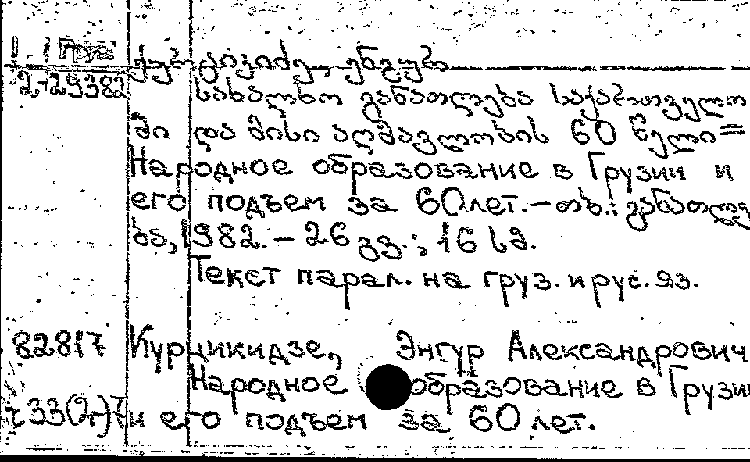 Груз.
2-29382
ქურციკიძე, ენგური
სახალხო განათლება საქართველო
ში და მისი აღმავლობის 60 წელი=
Народное образование в Грузии и
его подъем за 60 лет.-თბ.: განათლე
ბა, 1982.-26 გვ.; 16 სმ.
Текст парал. на груз. и рус. яз.
82817 Курцикидзе, Энгур Александрович
Народное образование в Грузии
и его подъем за 60 лет.